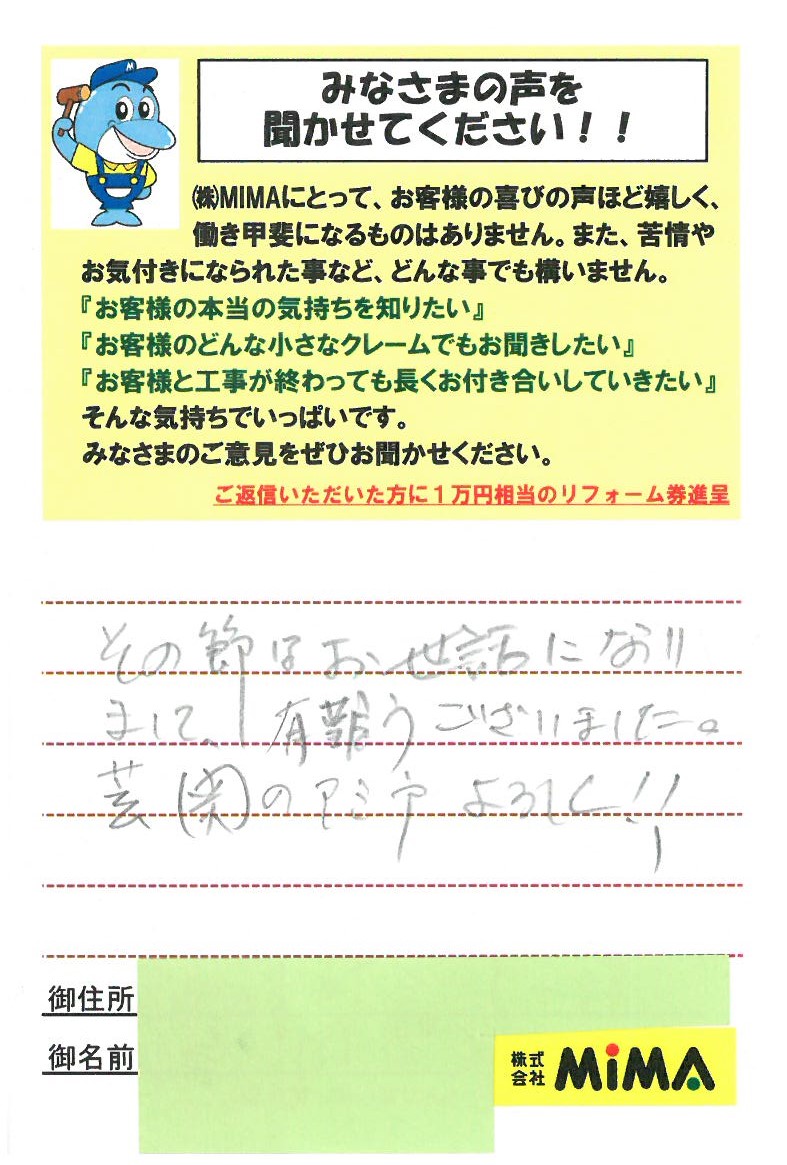 みなさまの声を
聞かせてください！！
㈱MIMAにとって、お客様の喜びの声ほど嬉しく、
働き甲斐になるものはありません。また、苦情や
お気付きになられた事など、どんな事でも構いません。
『お客様の本当の気持ちを知りたい』
『お客様のどんな小さなクレームでもお聞きしたい』
『お客様と工事が終わっても長くお付き合いしていきたい』
そんな気持ちでいっぱいです。
みなさまのご意見をぜひお聞かせください。
ご返信いただいた方に１万円相当のリフォーム券進呈
その節はお世話になり
まして、有難うございました。
のアミ戸 よろしく!!
御住所
御名前
株式会社 MiMA
M